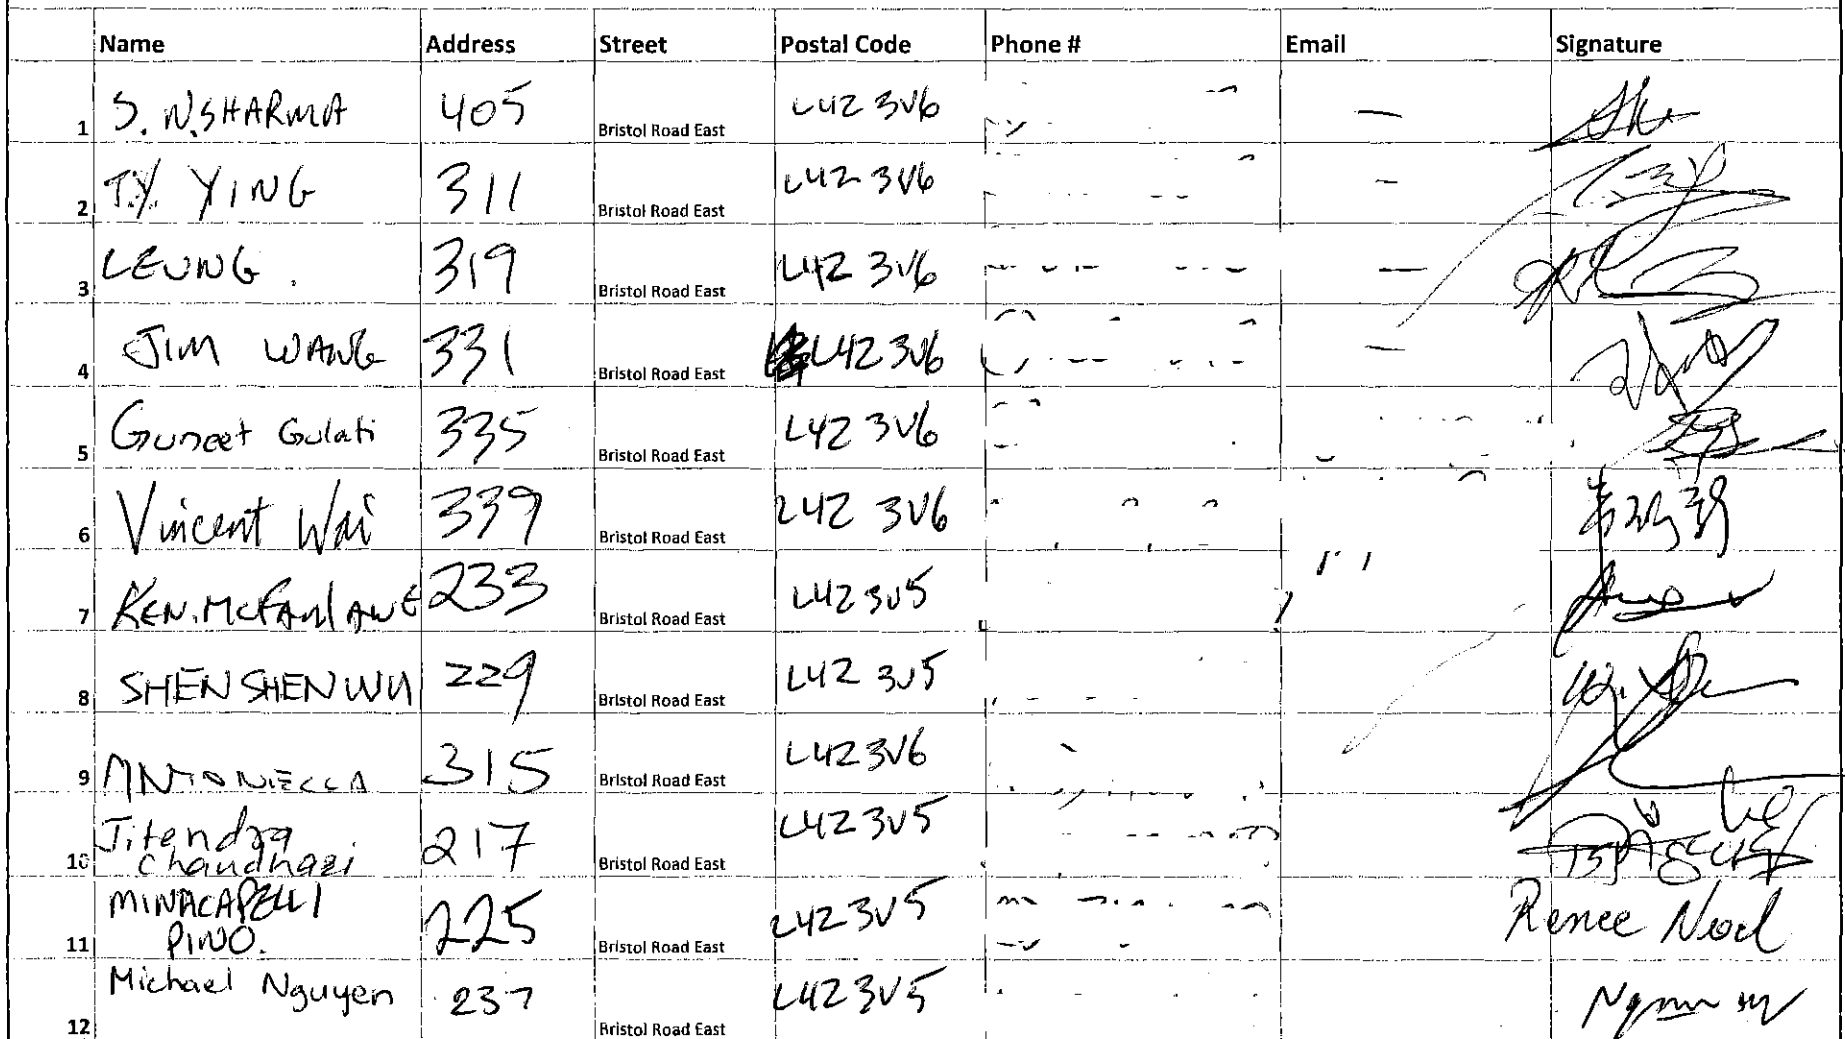 Name Address Street Postal Code Phone # Email Signature
1 S. N. SHARMA 405 Bristol Road East L4Z 3V6
2 T.Y. YING 311 Bristol Road East L4Z 3V6
3 LEUNG. 319 Bristol Road East L4Z 3V6
4 JIM WANG 331 Bristol Road East L4Z 3V6
5 Guneet Gulati 335 Bristol Road East L4Z 3V6
6 Vincent Wai 339 Bristol Road East L4Z 3V6
7 KEN. MCFARLANE 233 Bristol Road East L4Z 3V5
8 SHEN SHEN WU 229 Bristol Road East L4Z 3V5
9 ANTONIELLA 315 Bristol Road East L4Z 3V6
Jitendra
10 Chaudhari 217 Bristol Road East L4Z 3V5
MINACAPELLI
11 PINO. 225 Bristol Road East L4Z 3V5 Renee Neod
12 Michael Nguyen 237 Bristol Road East L4Z 3V5